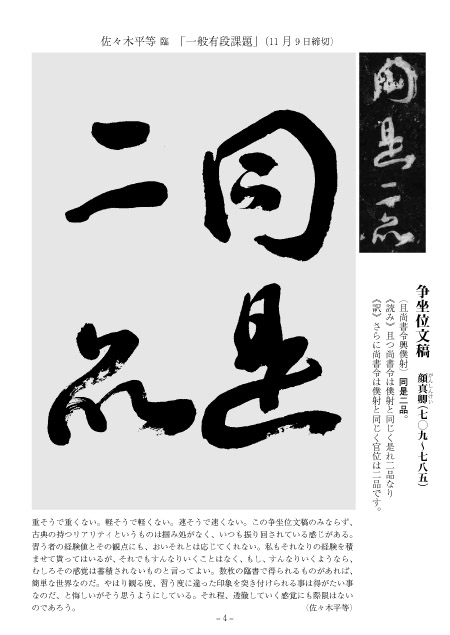 佐々木平等 臨 「一般有段課題」(11月9日締切)
同是
二品
同是二品
争坐位文稿 顔真卿(七〇九~七八五)
がんしんけい
(且尚書令與僕射)同是二品。
《読み》且つ尚書令は僕射と同じく是れ二品なり
《訳》さらに尚書令は僕射と同じく官位は二品です。
重そうで重くない。軽そうで軽くない。速そうで速くない。この争坐位文稿のみならず、
古典の持つリアリティというものは掴み処がなく、いつも振り回されている感じがある。
習う者の経験値とその観点にも、おいそれとは応じてくれない。私もそれなりの経験を積
ませて貰ってはいるが、それでもすんなりいくことはなく、もし、すんなりいくようなら、
むしろその感覚は蓄積されないものと言ってよい。数枚の臨書で得られるものがあれば、
簡単な世界なのだ。やはり観る度、習う度に違った印象を突き付けられる事は得がたい事
なのだ、と悔しいがそう思うようにしている。それ程、透徹していく感覚にも際限はない
のであろう。 (佐々木平等)
– 4 –